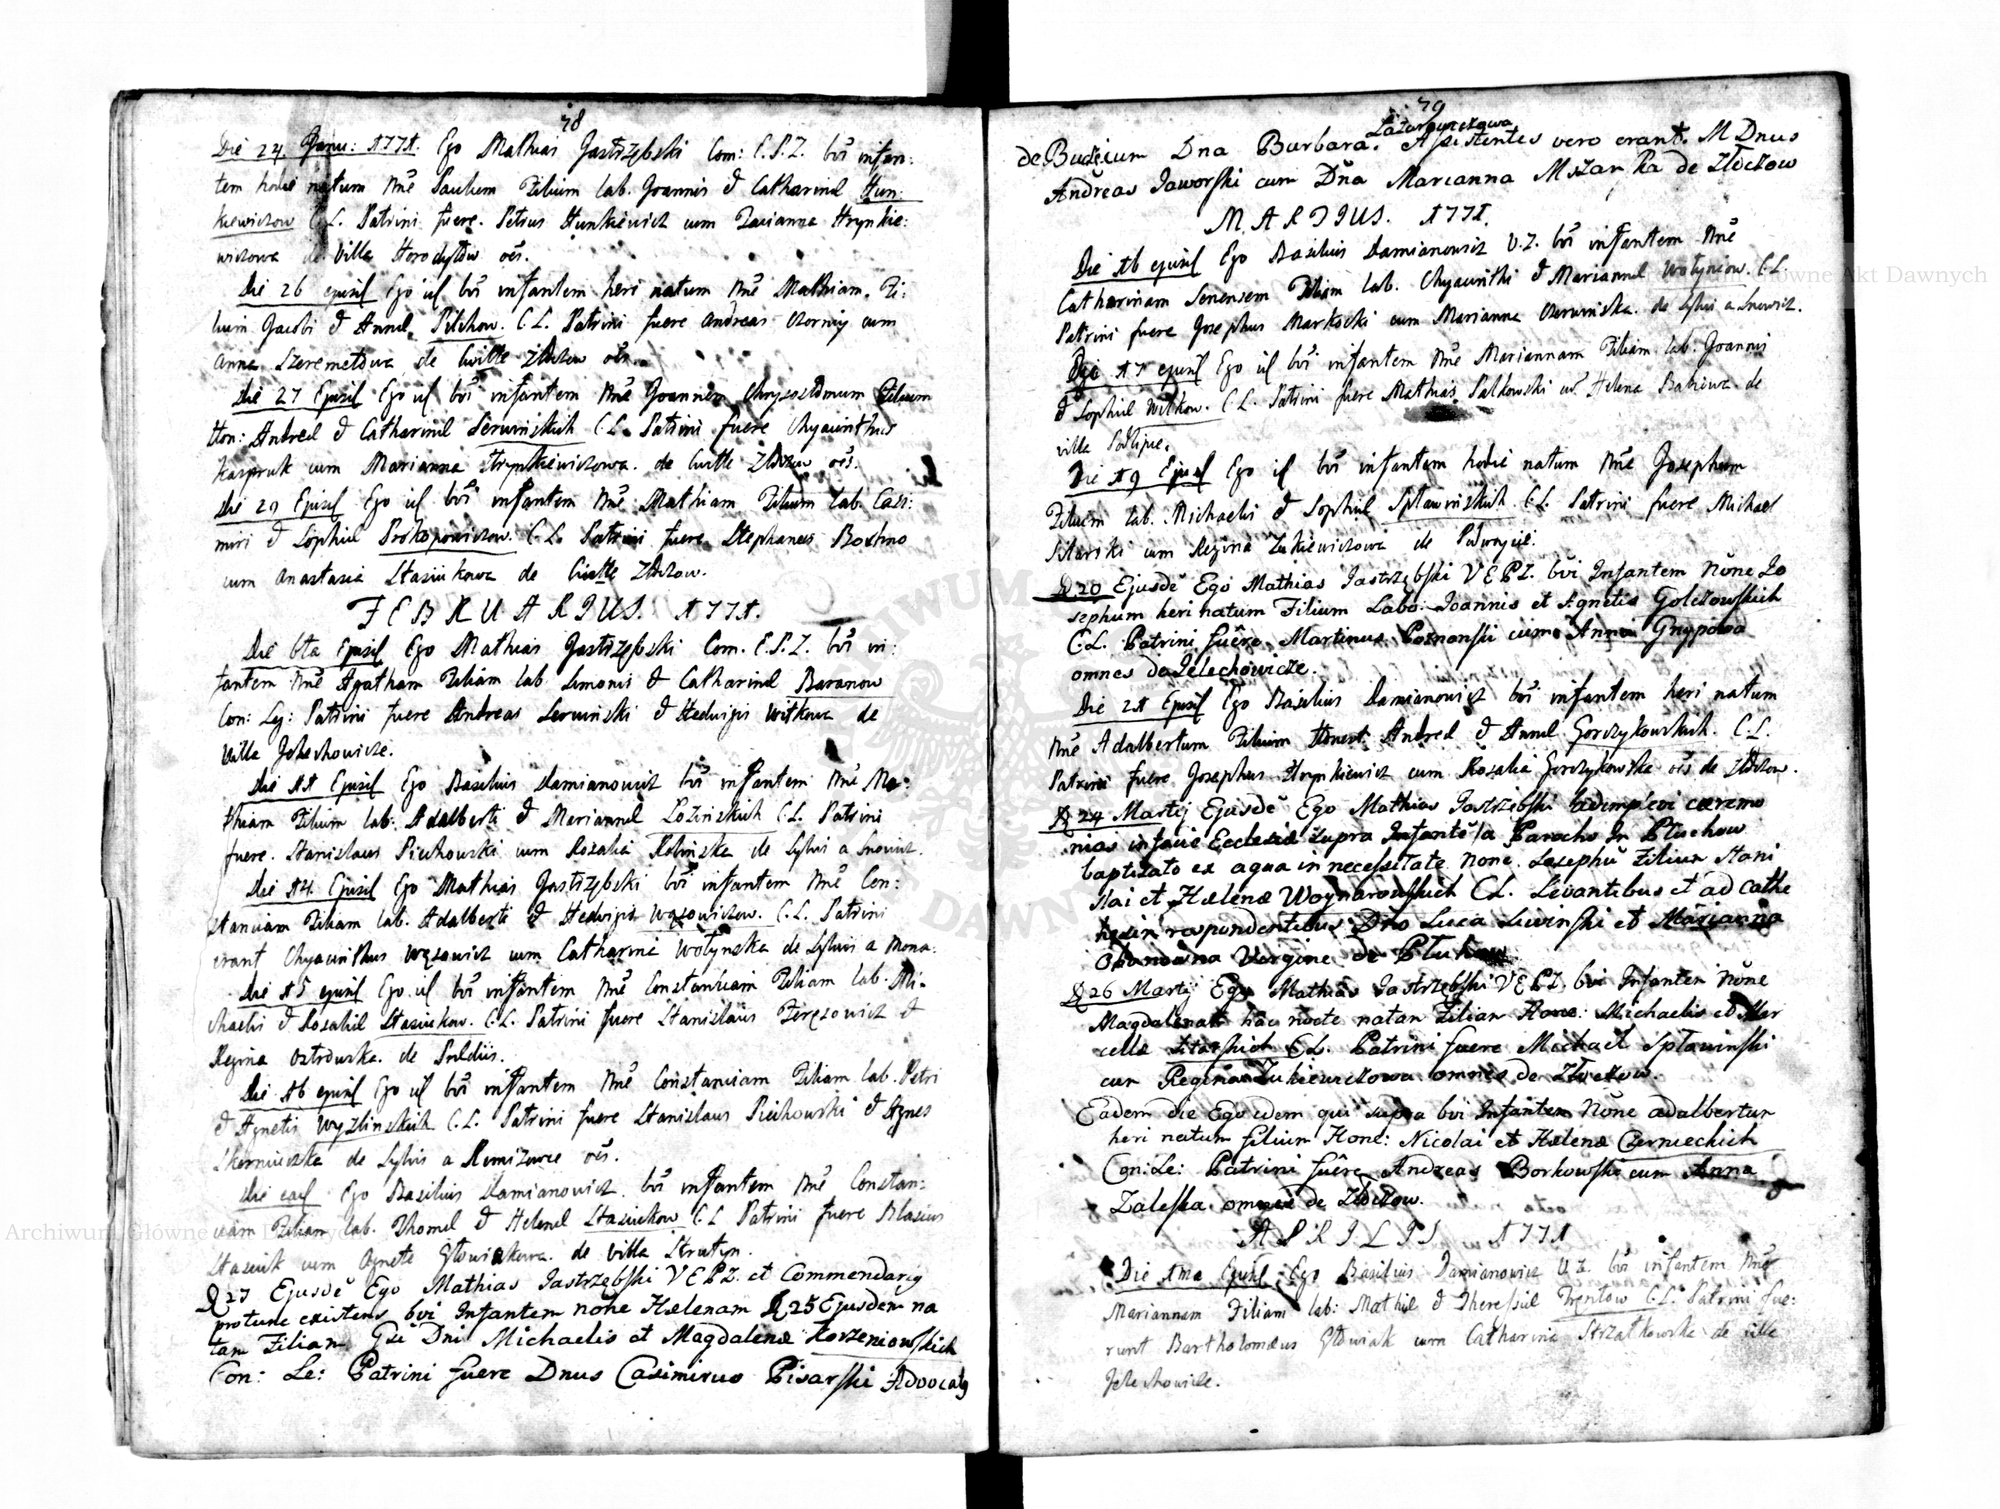 78
Die 24. Janu: 1771. Ego Mathias Jastrzębski Com: E.P.Z. bvi infan:
tem hodie natum nne Paulum Filium lab. Joannis & Catharinæ Hun:
kiewiczow C.L. Patrini fuere. Petrus Hunkiewicz cum Marianna Hrynkie:
wiczowa de Villa Horodyłow oẽs.
Die 26 ejusd Ego id bvi infantem heri natum nne Mathiam. Fi:
lium Jacobi & Annæ Pilchow. C.L. Patrini fuere Andreas Czorniy cum
Anna Szeremetowa de Civitte Złoczow oẽs.
Die 27 Ejusd Ego id bvi infantem nne Joannem Chrysostomum Filium
Hon: Andreæ & Catharinæ Serwinskich C.L. Patrini fuere Chyacinthus
Kaspruk cum Marianna Hrynkiewiczowa. de Civitte Złoczow oẽs.
Die 29 Ejusd Ego id bvi infantem nne Mathiam Filium lab. Casi:
miri & Sophiæ Prokopowiczow. C.L. Patrini fuere Stephanus Bochno
cum Anastasia Stasiukowa de Civitte Złoczow.
FEBRUARIUS. 1771.
Die 6ta Ejusd Ego Mathias Jastrzębski Com. E.P.Z. bvi in:
fantem nne Agatham Filiam lab. Simonis & Catharinæ Baranow
Con: Leg: Patrini fuere Andreas Serwinski & Hedvigis Witkowa de
Villa Jelechowicze.
Die 11 Ejusd Ego Basilius Damianowicz bvi infantem nne Ma:
thiam Filium lab: Adalberti & Mariannæ Łozinskich C.L. Patrini
fuere. Stanislaus Piechowski cum Rosalia Rolinska de Sylvis a Snowicz.
Die 14. Ejusd Ego Mathias Jastrzębski bvi infantem nne Con:
stanciam Filiam lab. Adalberti & Hedvigis Wąsowiczow. C.L. Patrini
erant Chyacinthus Wąsowicz cum Catharina Wołynska de Sylvis a Mona.
Die 15 ejusd Ego id bvi infantem nne Constantiam Filiam lab. Mi:
chaelis & Rosaliæ Stasiukow. C.L. Patrini fuere Stanislaus Feręsowicz &
Regina Ostrowska. de
Die 16 ejusd Ego id bvi infantem nne Constanciam Filiam lab. Petri
& Agnetis Wyzlinskich C.L. Patrini fuere Stanislaus Piechowski & Agnes
Skerniuczka de Sylvis a Remizowce oẽs.
Die ead Ego Basilius Damianowicz. bvi infantem nne Constan:
ciam Filiam lab. Thomæ & Helenæ Stasiukow C.L. Patrini fuere Blasius
Stasiuk cum Agnete Głowiakowa. de Villa Strutyn.
D 27 Ejusdẽ Ego Mathias Jastrzębski VEPZ. et Commendarig
protunc existens bvi Infantem none Hælenam D 25 Ejusdem na
tam Filiam Gsi Dni Michaelis et Magdalenæ Korzeniowskich
Con: Le: Patrini fuere Dnus Casimirus Pisarski Advocatg
79
Łazarowiczowa
de Buczium Dna Barbara. Assistentes vero erant. M Dnus
Andreas Jaworski cum Dña Marianna Mszanska de Złoczow
MARTIUS. 1771.
Die 16 ejusd Ego Basilius Damianowicz V.Z. bvi infantem nne
Catharinam Senensem Filiam lab. Chyacinthi & Mariannæ Wołyniow. C.L.
Patrini fuere Josephus Markocki cum Marianna Czerwinska. de Sylvis a Snowicz.
Die 17 ejusd Ego id bvi infantem nne Mariannam Filiam lab. Joannis
& Sophiæ Witkow. C.L. Patrini fuere Mathias Palkowski cũ Helena Bakiewa de
Villa Podlipie.
Die 19 Ejusd Ego id bvi infantem hodie natum nne Josephum
Filium lab. Michaelis & Sophiæ Spławinskich C.L. Patrini fuere Michael
Sitarski cum Regina Łukiewiczowa de Podwoycie.
D 20 Ejusdẽ Ego Mathias Jastrzębski VEPZ. bvi Infantem Nõne Jo
sephum heri natum Filium Labo. Joannis et Agnetis Golczowskich
C.L. Patrini fuêre Martinus Poznanski cum Anna Gnypowa
omnes de Jelechowicze.
Die 21 Ejusd Ego Basilius Damianowicz bvi infantem heri natum
nne Adalbertum Filium Honest. Andreæ & Annæ Gorczykowskich. C.L.
Patrini fuere Josephus Hrynkiewicz cum Rosalia Gorczykowska oẽs de Złoczow.
D 24 Martij Ejusdẽ Ego Mathias Jastrzębski adimplevi ceremo
nias in facie Ecclesiæ supra Infantẽ a Parocho In Pluchow
baptisato ex aqua in necessitate None. Josephũ Filium Stani
slai et Hælenæ Woynarowskich C.L. Levantibus et ad cathe
hesin respondentibus Dno Luca Liwinski et Marianna
Obandana Virgine de Pluhow.
D 26 Martij Ego Mathias Jastrzębski VEPZ bvi Infantem Nõne
Magdalenam hac nocte natam Filiam Hone: Michaelis et Mar
cellæ Sitarskich C.L. Patrini fuere Michael Spławinski
cum Regina Łukiewiczowa omnes de Złoczow.
Eadem die Ego idem qui supra bvi Infantem Nõne adalbertum
heri natum filium Hone: Nicolai et Hælenæ Czerniechich
Con: Le: Patrini fuêre Andreas Borkowski cum Anna
Zaleska omnes de Złoczow.
APRILIS 1771
Die 1ma Ejusd Ego Basilius Damianowicz V.Z. bvi infantem nne
Mariannam Filiam lab: Mathiæ & Theressiæ Trentow C.L. Patrini fue:
runt Bartholomæus Głowiak cum Catharina Strzałkowska de Villa
Jelechowicze.
Archiwum Główne Akt Dawnych
Archiwum Główne Akt Dawnych